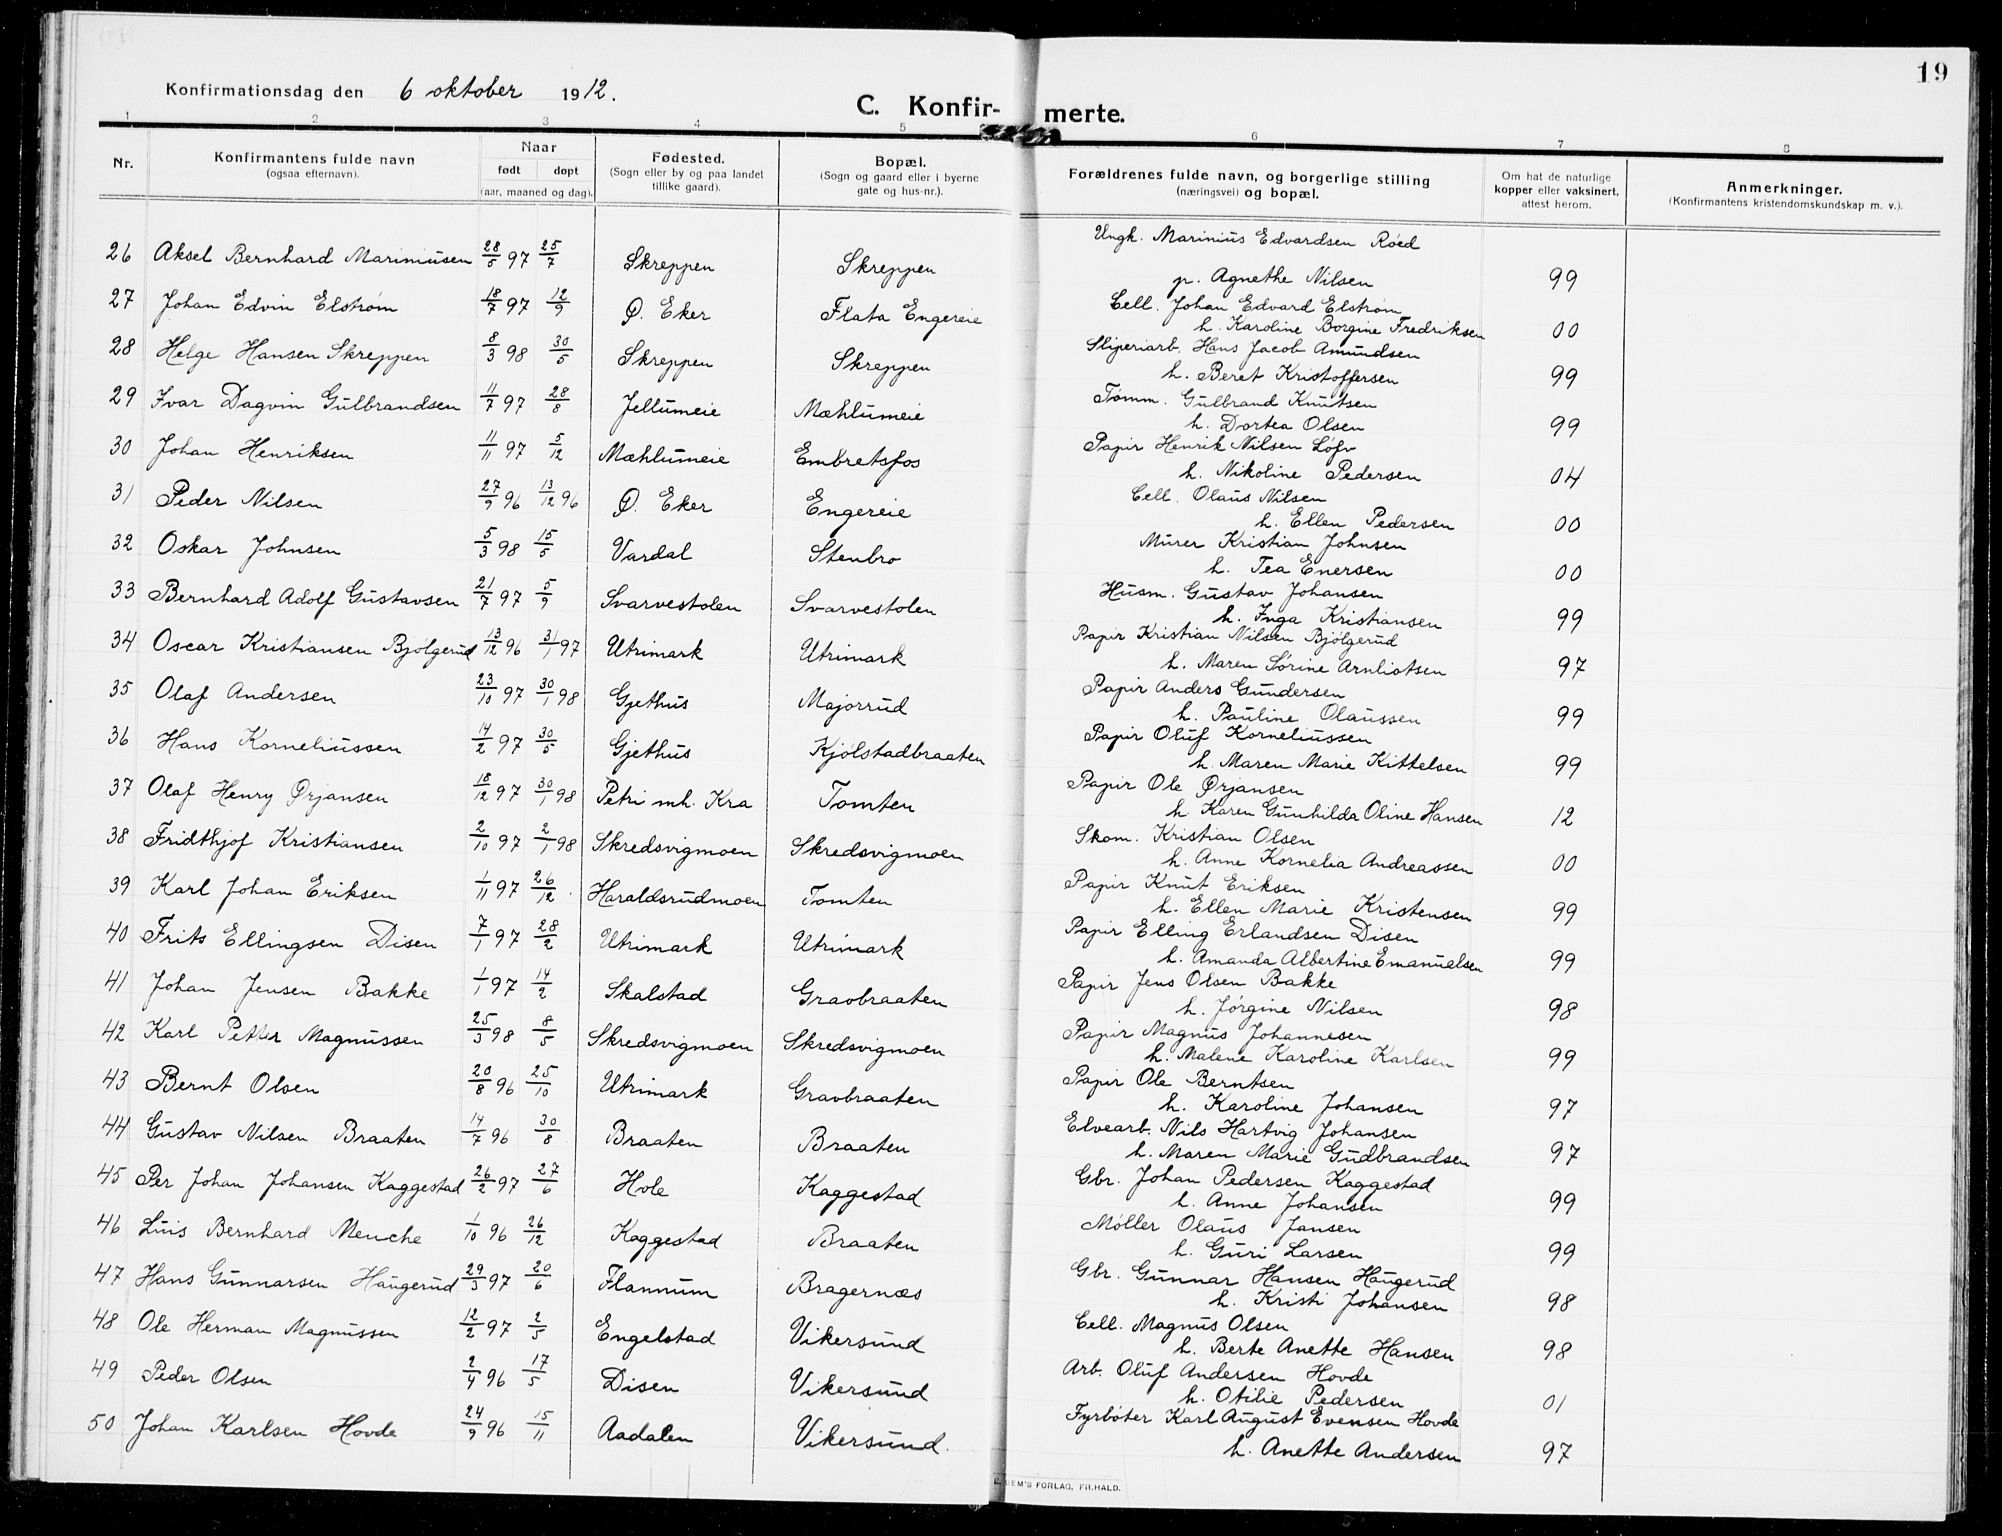 19
Konfirmationsdag den 6 oktober 1912.
C. Konfir- merte.
1 2 3 4 5 6 7 8
Nr. Konfirmantens fulde navn (ogsaa efternavn). Naar født døpt (aar, maaned og dag). Fødested. (Sogn eller by og paa landet tillike gaard). Bopæl. (Sogn og gaard eller i byerne gate og hus-nr.). Forældrenes fulde navn, og borgerlige stilling (næringsvei) og bopæl. Om hat de naturlige kopper eller vaksinert, attest herom. Anmerkninger. (Konfirmantens kristendomskundskap m. v.).
26 Aksel Bernhard Marinusen 28/5 97 25/7 Skreppen Skreppen Ungk. Marinius Edvardsen Røed
p. Agnethe Nilsen 99
27 Johan Edvin Elstrøm 18/7 97 12/9 Ø. Eker Flata Engereie Cell. Johan Edvard Elstrøm
h. Karoline Borgine Fredriksen 00
28 Helge Hansen Skreppen 8/3 98 30/5 Skreppen Skreppen Sliperiarb. Hans Jacob Amundsen
h. Beret Kristoffersen 99
29 Ivar Dagvin Gulbrandsen 11/7 97 28/8 Jellumeie Mæhlumeie Tømm. Gulbrand Knutsen
h. Dortea Olsen 99
30 Johan Henriksen 11/11 97 5/12 Mæhlumeie Embretsfos Papir Henrik Nilsen Løfv
h. Nikoline Pedersen 04
31 Peder Nilsen 27/9 96 13/12 96 Ø. Eker Engereie Cell. Olaus Nilsen
h. Ellen Pedersen 00
32 Oskar Johnsen 5/3 98 15/5 Vardal Stenbro Murer Kristian Johnsen
h. Tea Enersen 00
33 Bernhard Adolf Gustavsen 21/7 97 5/9 Svarvestolen Svarvestolen Husm. Gustav Johansen
h. Inga Kristiansen 99
34 Oscar Kristiansen Bjølgerud 13/12 96 31/1 97 Utrimark Utrimark Papir Kristian Nilsen Bjølgerud
h. Maren Sørine Arnliotsen 97
35 Olaf Andersen 23/10 97 30/1 98 Gjethus Majorrud Papir Anders Gundersen
h. Pauline Olaussen 99
36 Hans Korneliussen 14/2 97 30/5 Gjethus Kjølstadbraaten Papir Oluf Korneliussen
h. Maren Marie Kittelsen 99
37 Olaf Henry Ørjansen 18/12 97 30/1 98 Petri mh. Kra Tomten Papir Ole Ørjansen
h. Karen Gunhilda Oline Hansen 12
38 Fridthjof Kristiansen 2/10 97 2/1 98 Skredsvigmoen Skredsvigmoen Skom. Kristian Olsen
h. Anne Kornelia Andreassen 00
39 Karl Johan Eriksen 1/11 97 26/12 Haraldsrudmoen Tomten Papir Knut Eriksen
h. Ellen Marie Kristensen 99
40 Frits Ellingsen Disen 7/1 97 28/2 Utrimark Utrimark Papir Elling Erlandsen Disen
h. Amanda Albertine Emanuelsen 99
41 Johan Jensen Bakke 1/1 97 14/2 Skalstad Gravbraaten Papir Jens Olsen Bakke
h. Jørgine Nilsen 98
42 Karl Petter Magnussen 25/3 98 8/5 Skredsvigmoen Skredsvigmoen Papir Magnus Johannesen
h. Malene Karoline Karlsen 99
43 Bernt Olsen 20/8 96 25/10 Utrimark Gravbraaten Papir Ole Berntsen
h. Karoline Johansen 97
44 Gustav Nilsen Braaten 14/7 96 30/8 Braaten Braaten Elvearb. Nils Hartvig Johansen
h. Maren Marie Gudbrandsen 97
45 Per Johan Johansen Kaggestad 26/2 97 27/6 Hole Kaggestad Gbr. Johan Pedersen Kaggestad
h. Anne Johansen 99
46 Luis Bernhard Menche 1/10 96 26/12 Kaggestad Braaten Møller Olaus Jansen
h. Guri Larsen 99
47 Hans Gunnarsen Haugerud 29/3 97 20/6 Flannum Bragernæs Gbr. Gunnar Hansen Haugerud
h. Kristi Johansen 98
48 Ole Herman Magnussen 12/2 97 2/5 Engelstad Vikersund Cell. Magnus Olsen
h. Berte Anette Hansen 98
49 Peder Olsen 2/4 96 17/5 Disen Vikersund Arb. Oluf Andersen Hovde
h. Otilie Pedersen 01
50 Johan Karlsen Hovde 24/9 96 15/11 Aadalen Vikersund. Fyrbøter Karl August Evensen Hovde
h. Anette Andersen 97
FORLAG, FR.HALD.